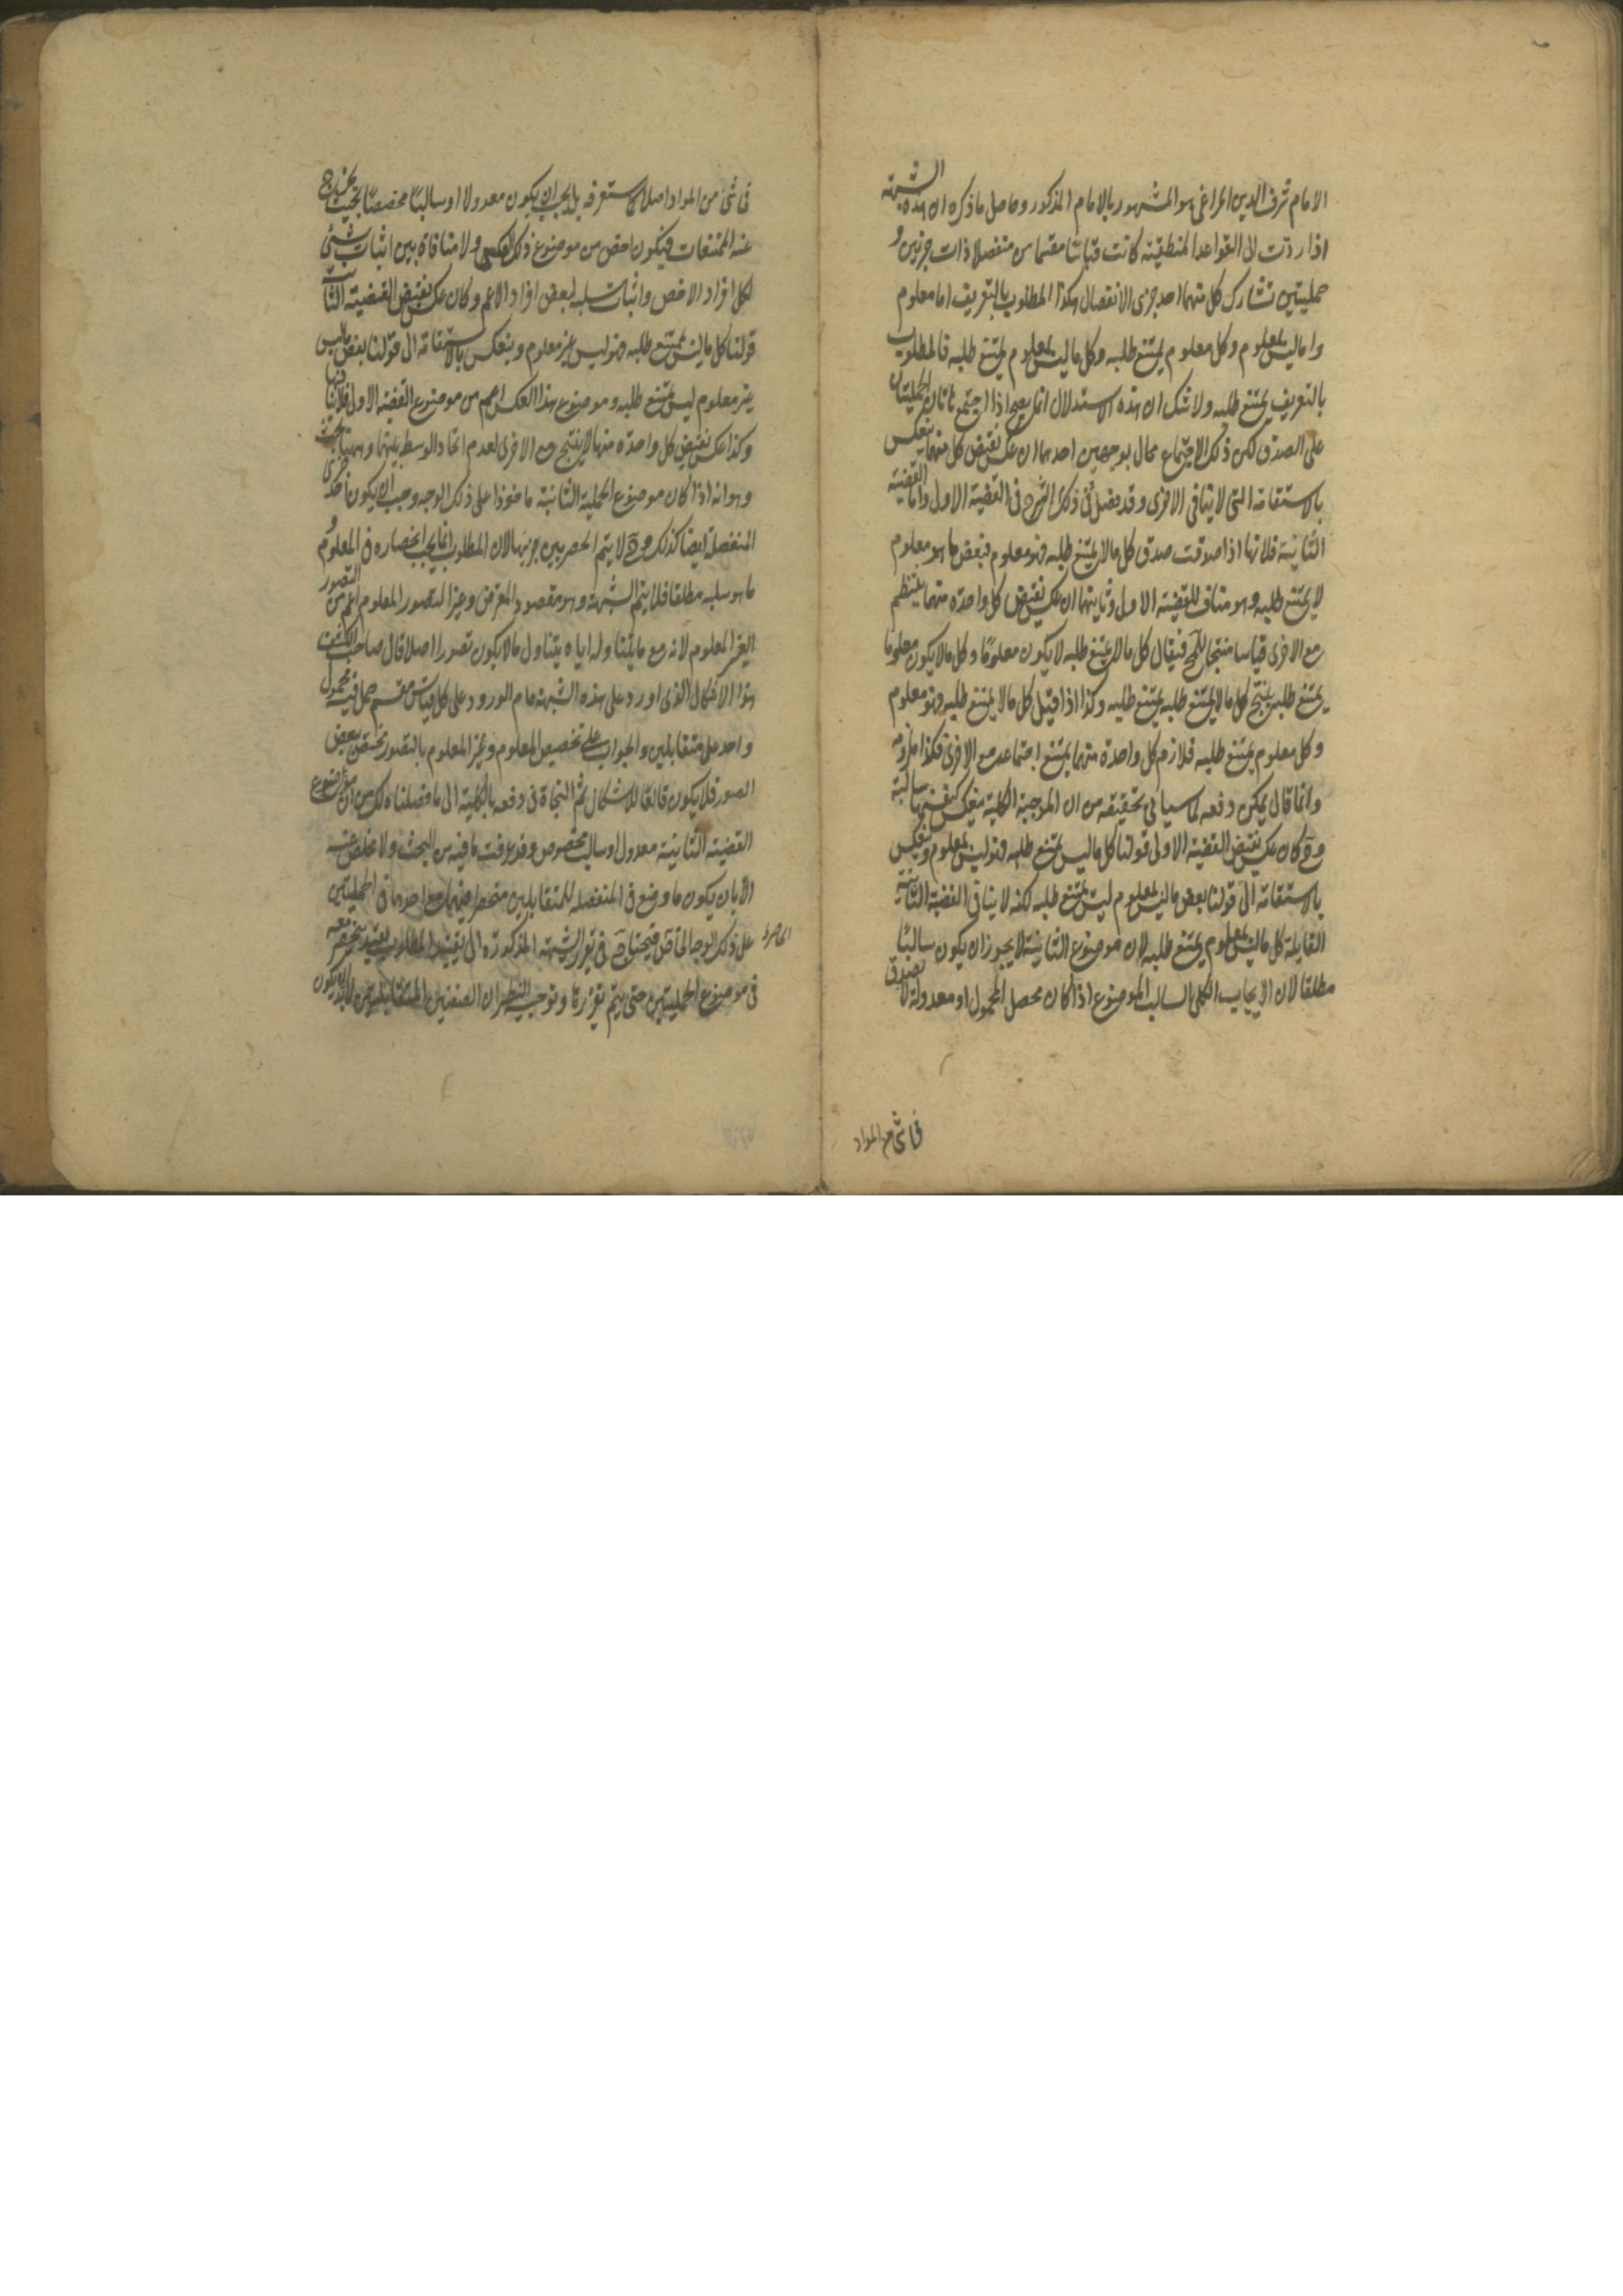 الامام شرف الدين المراغى هو المشهور بالامام المذكور وحاصل ما ذكره ان هذه الشبهة
اذا ردت الى القواعد المنطقية كانت قياسا مقسما من منفصلة ذات جزئين و
حمليتين تشارك كل منهما احد جزئى الانفصال هكذا المطلوب بالتعريف اما معلوم
واما ليس بمعلوم وكل معلوم يمتنع طلبه وكل ما ليس بمعلوم يمتنع طلبه فالمطلوب
بالتعريف يمتنع طلبه ولا شك ان هذه الاستدلال انما يصح اذا اجتمع هاتان الحمليتان
على الصدق لكن ذلك الاجتماع محال بوجهين احدهما ان عكس نقيض كل منهما ينعكس
بالاستقامة الى لا ينافى الاخرى وقد فصل ذلك فى الشرح فى القضية الاولى واما القضية
الثانية فلانها اذا صدقت صدق كل ما لا يمتنع طلبه فهو معلوم فبعض ما هو معلوم
لا يمتنع طلبه وهو مناف للقضية الاولى وثانيهما ان عكس نقيض كل واحدة منهما ينتظم
مع الاخرى قياسا منتجا للمح فيقال كل ما لا يمتنع طلبه لا يكون معلوما وكل ما لا يكون معلوما
يمتنع طلبه ينتج كل ما لا يمتنع طلبه يمتنع طلبه وكذا اذا قيل كل ما لا يمتنع طلبه فهو معلوم
وكل معلوم يمتنع طلبه فلازم كل واحدة منهما يمتنع اجتماعه مع الاخرى فكذا ملزومه
وانما قال يمكن دفعه لما سيأتى تحقيقه من ان الموجبة الكلية سالبة
وح كان عكس نقيض القضية الاولى قولنا كل ما ليس يمتنع طلبه فهو ليس بمعلوم وينعكس
بالاستقامة الى قولنا بعض ما ليس بمعلوم ليس يمتنع طلبه لكنه لا ينافى القضية الثانية
القايلة كل ما ليس بمعلوم يمتنع طلبه لان موضوع الثانية لا يجوز ان يكون سالبا
مطلقا لان الايجاب الكلى السالب الموضوع اذا كان محصل المحمول او معدولة لا يصدق
فى شئ من المواد
فى شئ من المواد اصلا كما ستعرفه بل يجب ان يكون معدولا او سالبا مخصصا بحيث يخرج
عنه الممتنعات فيكون اخص من موضوع ذلك العكس ولا منافاة بين اثبات شئ
لكل افراد الاخص واثبات سلبه لبعض افراد الاعم وكان عكس نقيض القضية الثانية
قولنا كل ما ليس يمتنع طلبه فهو ليس غير معلوم وينعكس بالاستقامة الى قولنا بعض ما ليس
غير معلوم ليس يمتنع طلبه وموضوع هذا العكس اعم من موضوع القضية الاولى فلا ينافيها
وكذا عكس نقيض كل واحدة منهما لا ينتج مع الاخرى لعدم اتحاد الوسط بينهما وههنا بحث
وهو انه اذا كان موضوع الحملية الثانية ماخوذا على ذلك الوجه وجب ان يكون احد جزئى
المنفصلة ايضا كذلك وح لا يتم الحصر بين جزئيها لان المطلوب انما يجب انحصاره فى المعلوم و
ما هو سلبه مطلقا فلا يتم الشبهة وهو مقصود المعترض وغير المتصور المعلوم اعم من التصور
الغير المعلوم لانه مع ما يتناوله اياه يتناول ما لا يكون تصورا اصلا قال صاحب الكشف
هذا الاشكال الذى اورد على هذه الشبهة عام الورود على كل قياس مقسم حمل فيه محمول
واحد على متقابلين والجواب على تخصيص المعلوم وغير المعلوم بالتصور مختص ببعض
الصور فلا يكون قالعا للاشكال ثم النجاة فى دفعه بالكلية الى ما فصلناه لك من ان موضوع
القضية الثانية معدول او سالب مخصوص وقد عرفت ما فيه من البحث ولا مخلص عنه
الا بان يكون ما وضع فى المنفصلة للمتقابلين منحصرا فيهما مع احدهما فى الحمليتين
على ذلك الوجه الخاص فيحتاج ح فى تقرير الشبهة المذكورة الى تقييد المطلوب بقيد ينحصر معه
الحاصر
فى موضوع الحمليتين حتى يتم تقريرها وتوجيه النظر ان الصنفين المتقابلين لا بد ان يكون